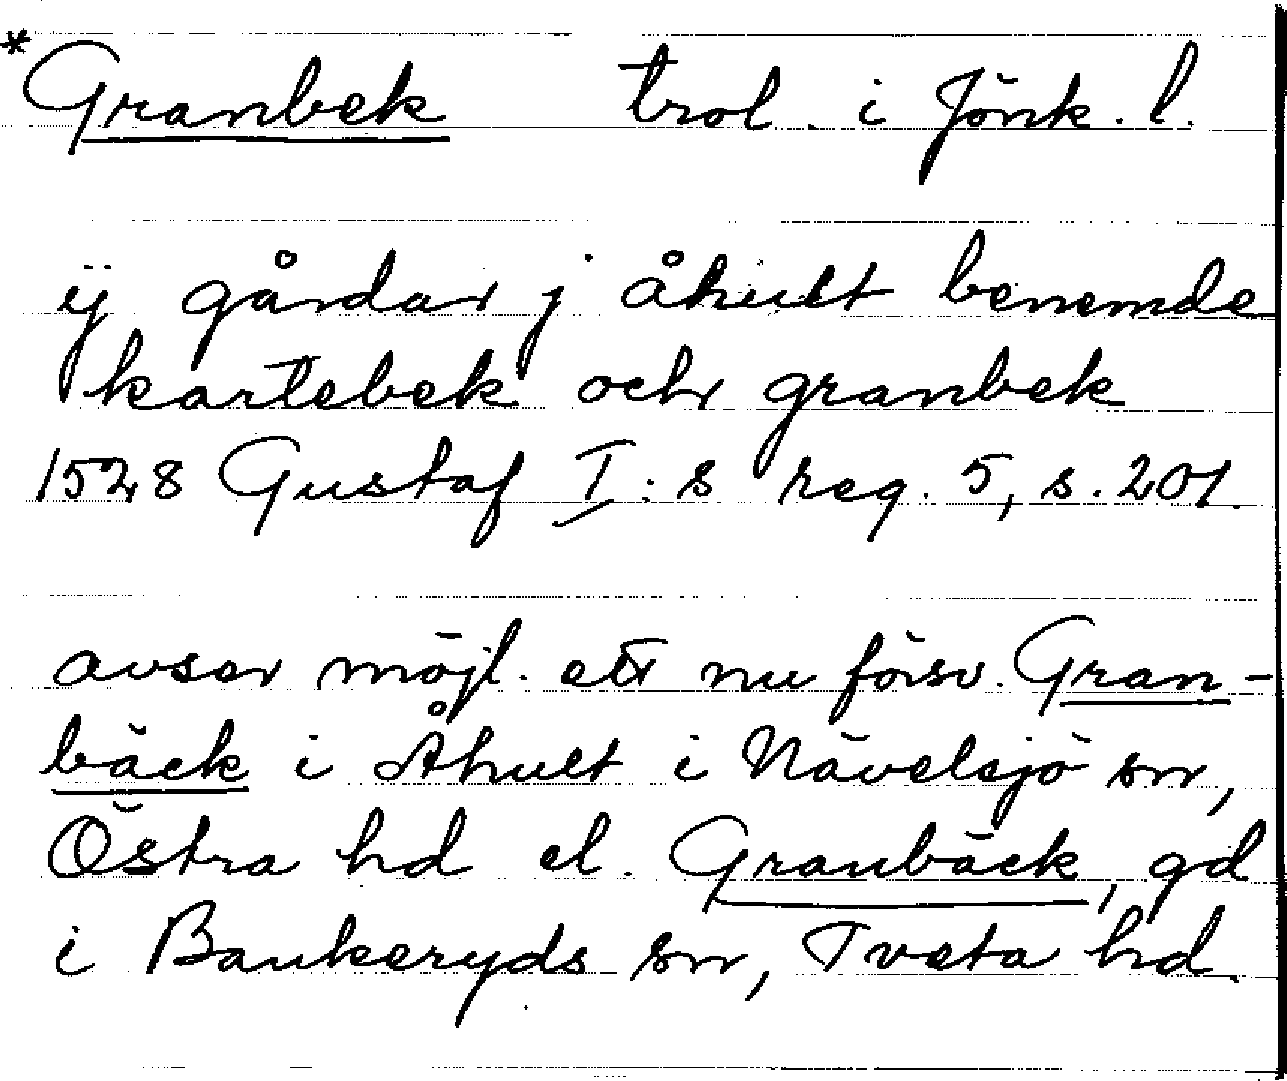 *Granbek trol. i Jönk. l.
ij gårdar j åhult benemde
kartebek och granbek
1528 Gustaf I:s reg. 5, s. 201.
avser möjl. ett nu försv. Gran-
bäck i Åhult i Nävelsjö sn,
Östra hd el. Granbäck, gd
i Bankeryds sn, Tveta hd.